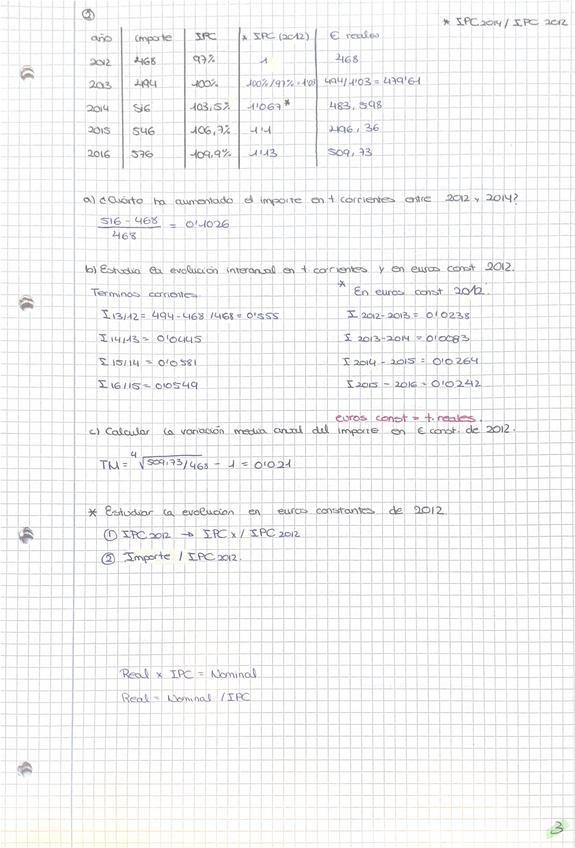 ③
* IPC2014 / IPC 2012
año importe IPC * IPC (2012) € reales
2012 468 97% 1 468
2013 494 100% 100%/97% = 1'03 494/1'03 = 479'61
2014 516 103,5% 1'067* 483,598
2015 546 106,7% 1'1 496,36
2016 576 109,9% 1'13 509,73
a) ¿Cuánto ha aumentado el importe en t corrientes entre 2012 y 2014?
516 - 468 / 468 = 0'1026
b) Estudia la evolución interanual en t corrientes y en euros const 2012.
Terminos corrientes * En euros const 2012
I 13/12 = 494-468 /468 = 0'555 I 2012-2013 = 0'0238
I 14/13 = 0'0445 I 2013-2014 = 0'0083
I 15/14 = 0'0581 I 2014 - 2015 = 0'0264
I 16/15 = 0'0549 I 2015 - 2016 = 0'0242
euros const = t. reales.
c) Calcular la variación media anual del importe en € const. de 2012.
TM = ⁴√509,73/468 - 1 = 0'021
* Estudiar la evolucion en euros constantes de 2012
① IPC 2012 → IPC x / IPC 2012
② Importe / IPC 2012.
Real x IPC = Nominal
Real = Nominal / IPC
3